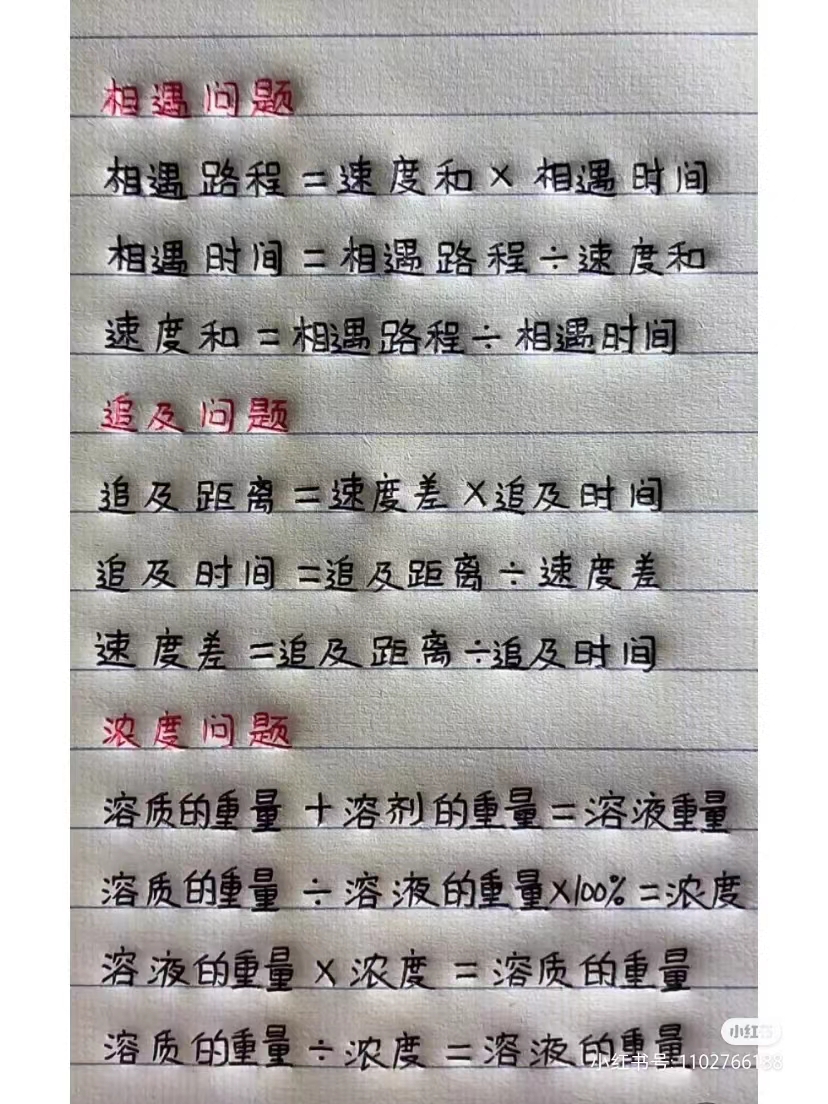 相遇问题
相遇路程=速度和×相遇时间
相遇时间=相遇路程÷速度和
速度和=相遇路程÷相遇时间
追及问题
追及距离=速度差×追及时间
追及时间=追及距离÷速度差
速度差=追及距离÷追及时间
浓度问题
溶质的重量+溶剂的重量=溶液重量
溶质的重量÷溶液的重量×100%=浓度
溶液的重量×浓度=溶质的重量
小红书
溶质的重量÷浓度=溶液的重量
小红书号:1102766188